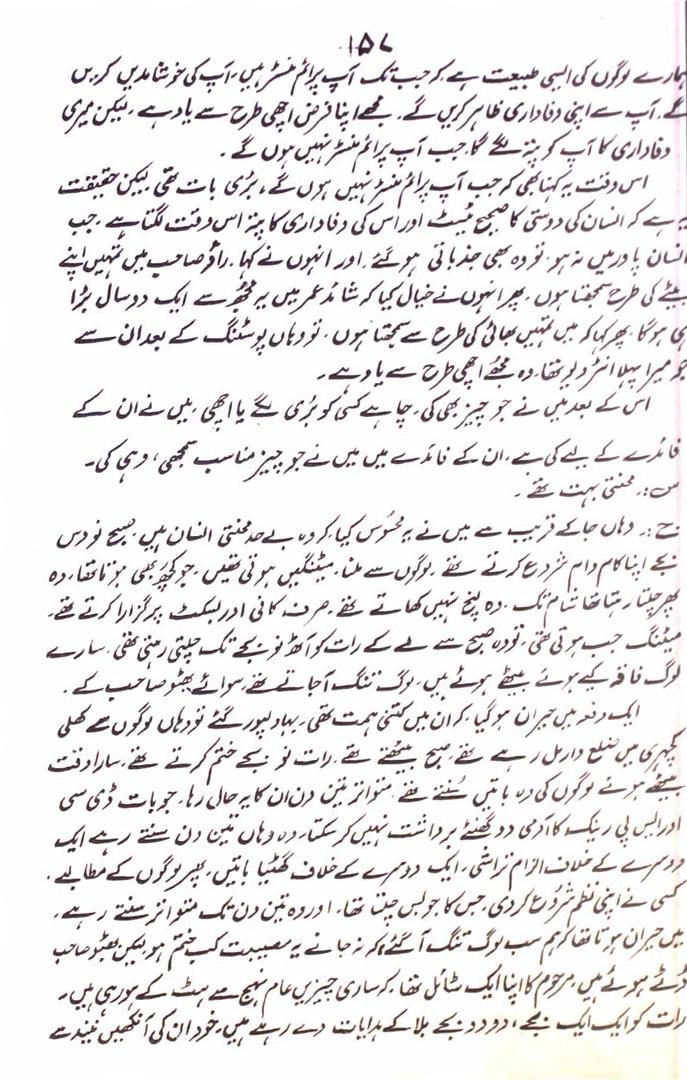 ۱۵۷
ہمارے لوگوں کی ایسی طبیعت ہے کہ جب تک آپ پرائم منسٹر ہیں، آپ کی خوشامدیں کریں
گے، آپ سے اپنی وفاداری ظاہر کریں گے۔ مجھے اپنا فرض اچھی طرح سے یاد ہے، لیکن میری
وفاداری کا آپ کو پتہ لگے گا، جب آپ پرائم منسٹر نہیں ہوں گے۔
اس وقت یہ کہنا بھی کہ جب آپ پرائم منسٹر نہیں ہوں گے، بُری بات تھی لیکن حقیقت
یہ ہے کہ انسان کی دوستی کا صحیح ٹیسٹ اور اس کی وفاداری کا پتہ اس وقت لگتا ہے، جب
انسان پاور میں نہ ہو، تو وہ بھی جذباتی ہو گئے، اور انہوں نے کہا، راؤ صاحب میں تمہیں اپنے
بیٹے کی طرح سمجھتا ہوں، پھر انہوں نے خیال کیا کہ شائد عمر میں یہ مجھ سے ایک دو سال بڑا
ہی ہو گا، پھر کہا کہ میں تمہیں بھائی کی طرح سے سمجھتا ہوں، تو وہاں پوسٹنگ کے بعد ان سے
جو میرا پہلا انٹرویو تھا، وہ مجھے اچھی طرح سے یاد ہے۔
اس کے بعد میں نے جو چیز بھی کی، چاہے کسی کو بُری لگے یا اچھی، میں نے ان کے
فائدے کے لیے کی ہے، ان کے فائدے میں میں نے جو چیز مناسب سمجھی، وہی کی۔
س:۔ محنتی بہت تھے۔
ج:۔ وہاں جا کے قریب سے میں نے یہ محسوس کیا، کہ وہ بے حد محنتی انسان ہیں، صبح نو دس
بجے اپنا کام وام شروع کرتے تھے، لوگوں سے ملنا، میٹنگیں ہوتی تھیں، جو کچھ بھی ہوتا تھا، وہ
پھر چلتا رہتا تھا شام تک، وہ لنچ نہیں کھاتے تھے، صرف کافی اور بسکٹ پر گزارا کرتے تھے،
میٹنگ جب ہوتی تھی، تو وہ صبح سے لے کے رات کو آٹھ نو بجے تک چلتی رہتی تھی، سارے
لوگ فاقہ کیے ہوئے بیٹھے ہوئے ہیں، لوگ تنگ آ جاتے تھے، سوائے بھٹو صاحب کے۔
ایک دفعہ میں حیران ہو گیا، کہ ان میں کتنی ہمت تھی، بہاولپور گئے تو وہاں لوگوں سے کھلی
کچہری میں ضلع وار مل رہے تھے، صبح بیٹھتے تھے، رات نو بجے ختم کرتے تھے، سارا وقت
بیٹھے ہوئے لوگوں کی وہ باتیں سُنتے تھے، متواتر تین دن ان کا یہ حال رہا، جو بات ڈی سی
اور ایس پی رینک کا آدمی دو گھنٹے برداشت نہیں کر سکتا، وہ وہاں تین دن سنتے رہے ایک
دوسرے کے خلاف الزام تراشی، ایک دوسرے کے خلاف گھٹیا باتیں، پھر لوگوں کے مطالبے،
کسی نے اپنی نظم شروع کر دی، جس کا جو بس چلتا تھا، اور وہ تین دن تک متواتر سنتے رہے،
میں حیران ہوتا تھا کہ ہم سب لوگ تنگ آ گئے کہ نہ جانے یہ مصیبت کب ختم ہو لیکن بھٹو صاحب
ڈٹے ہوئے ہیں، مرحوم کا اپنا ایک سٹائل تھا، کہ ساری چیزیں عام نہج سے ہٹ کے ہو رہی ہیں۔
رات کو ایک ایک بجے، دو دو بجے بلا کے ہدایات دے رہے ہیں، خود ان کی آنکھیں نیند سے